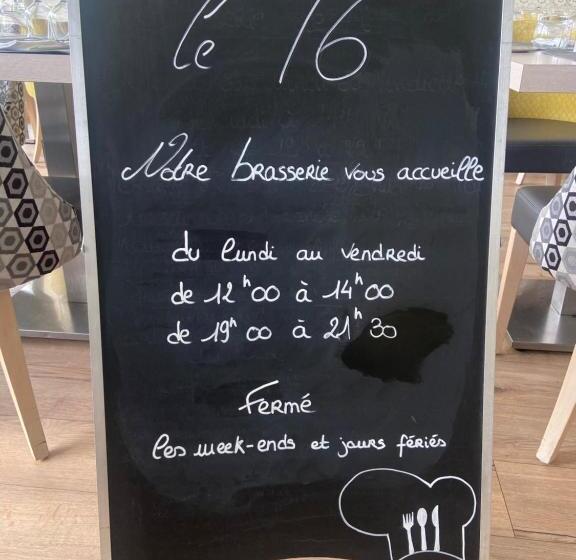 le 16
Notre brasserie vous accueille
du lundi au vendredi
de 12h00 à 14h00
de 19h00 à 21h30
Fermé
les week-ends et jours fériés